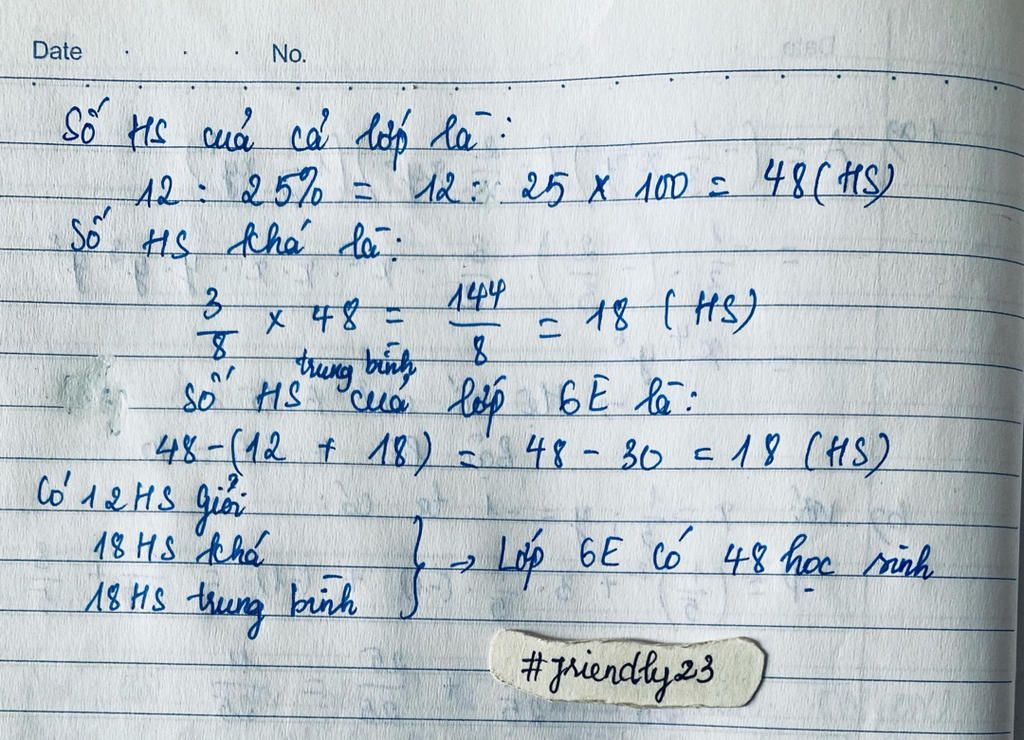 Date . . . No.
Số HS của cả lớp là:
12 : 25% = 12 : 25 x 100 = 48 (HS)
Số HS khá là:
3/8 x 48 = 144/8 = 18 (HS)
trung bình
Số HS của lớp 6E là:
48 - (12 + 18) = 48 - 30 = 18 (HS)
Có 12 HS giỏi
18 HS khá
18 HS trung bình } → Lớp 6E có 48 học sinh
#friendly23